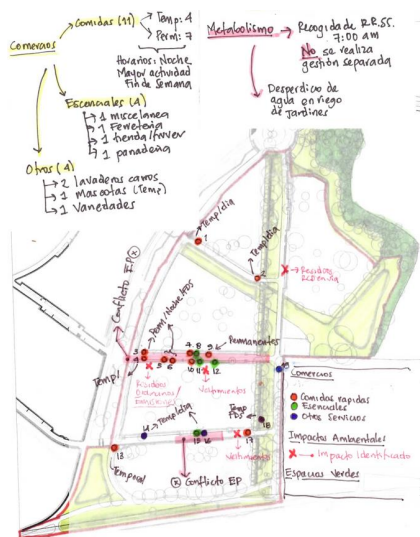 Comercios
Comidas (11)
Temp: 4
Perm: 7
Horarios: Noche
Mayor actividad
Fin de Semana
Escenciales (4)
1 miscelanea
1 Ferretería
1 tienda/fruver
1 panadería
Otros (4)
2 lavaderos carros
1 Mascotas (Temp)
1 Variedades
Metabolismo
Recogida de RR.SS.
7:00 am
No se realiza
gestión separada
Desperdicio de
agua en riego
de Jardines
Temp/dia
1
Temp/dia
2
Residuos
Conflicto E.P (x)
Perm/Noche/FDS
Permanentes
3
4
5
6
7
8
9
10
11
12
Temp/
Residuos
Vertimientos
Temp/dia
Temp
FDS
13
14
15
16
17
18
19
Temporal
Vertimientos
(x) Conflicto EP
Comercios
Comidas rapidas
Esenciales
Otros Servicios
Impactos Ambientales
Impacto Identificado
Espacios Verdes